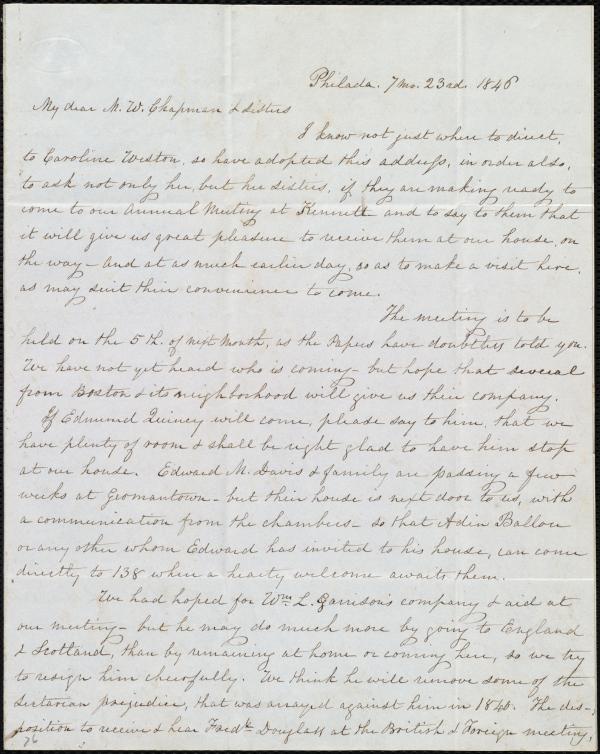 Philada. 7 mo. 23rd. 1846
My dear M. W. Chapman & sisters
I know not just where to direct,
to Caroline Weston, so have adopted this address, in order also,
to ask not only her, but her sisters, if they are making ready to
come to our Annual Meeting at Kennett and to say to them that
it will give us great pleasure to receive them at our house, on
the way – and at as much earlier day, so as to make a visit here,
as may suit their convenience to come.
The meeting is to be
held on the 5th. of next Month, as the Papers have doubtless told you.
We have not yet heard who is coming – but hope that several
from Boston & its neighborhood will give us their company.
If Edmund Quincy will come, please say to him, that we
have plenty of room & shall be right glad to have him stop
at our house. Edward M. Davis & family are passing a few
weeks at Germantown – but their house is next door to us, with
a communication from the chambers – so that Adin Ballou
or any other whom Edward has invited to his house, can come
directly to 138 when a hearty welcome awaits them.
We had hoped for Wm. L. Garrison's company & aid at
our meeting – but he may do much more by going to England
& Scotland, than by remaining at home or coming here, so we try
to resign him cheerfully. We think he will remove some of the
sectarian prejudice, that was arrayed against him in 1840. The dis-
position to receive & hear Fredk. Douglass at the British & Foreign meeting,
76